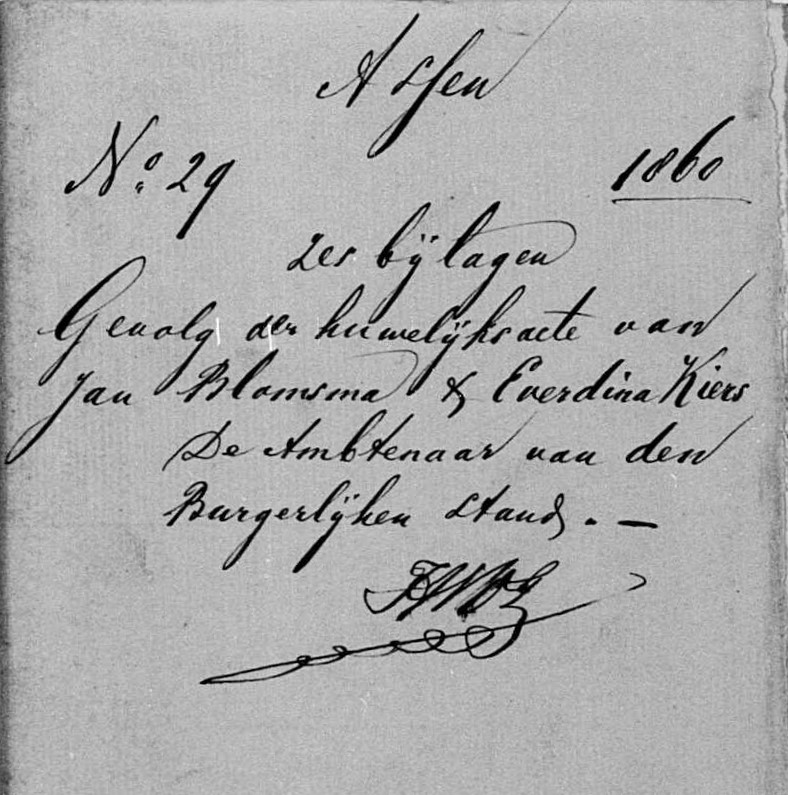 Assen
No. 29 1860
2es bijlagen
Gevolg der huwelijksacte van
Jan Blomsma & Everdina Kiers
De Ambtenaar van den
Burgerlijken Stand. —